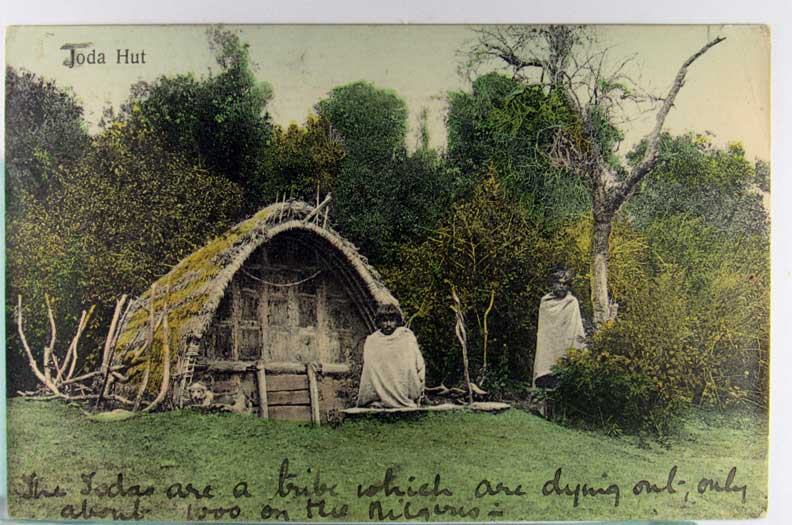 Toda Hut
The Todas are a tribe which are dying out, only
about 1000 on the Nilgiris -